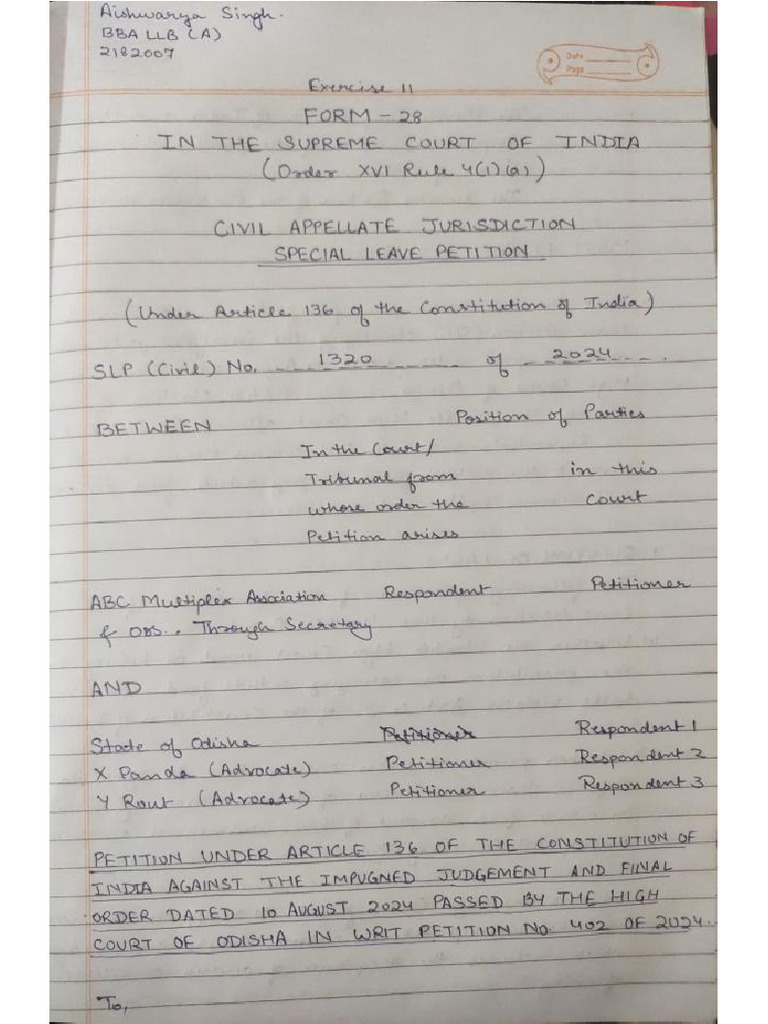 Aishwarya Singh.
BBA LLB (A)
2182007
Date
Page
Exercise 11
FORM - 28
IN THE SUPREME COURT OF INDIA
(Order XVI Rule 4(1)(a))
CIVIL APPELLATE JURISDICTION
SPECIAL LEAVE PETITION
(Under Article 136 of the Constitution of India)
SLP (Civil) No. 1320 of 2024
BETWEEN Position of Parties
In the Court/
Tribunal from in this
whose order the Court
Petition arises
ABC Multiplex Association Respondent Petitioner
& Ors., Through Secretary
AND
State of Odisha Petitioner Respondent 1
X Panda (Advocate) Petitioner Respondent 2
Y Rout (Advocate) Petitioner Respondent 3
PETITION UNDER ARTICLE 136 OF THE CONSTITUTION OF
INDIA AGAINST THE IMPUGNED JUDGEMENT AND FINAL
ORDER DATED 10 AUGUST 2024 PASSED BY THE HIGH
COURT OF ODISHA IN WRIT PETITION NO. 402 OF 2024.
To,